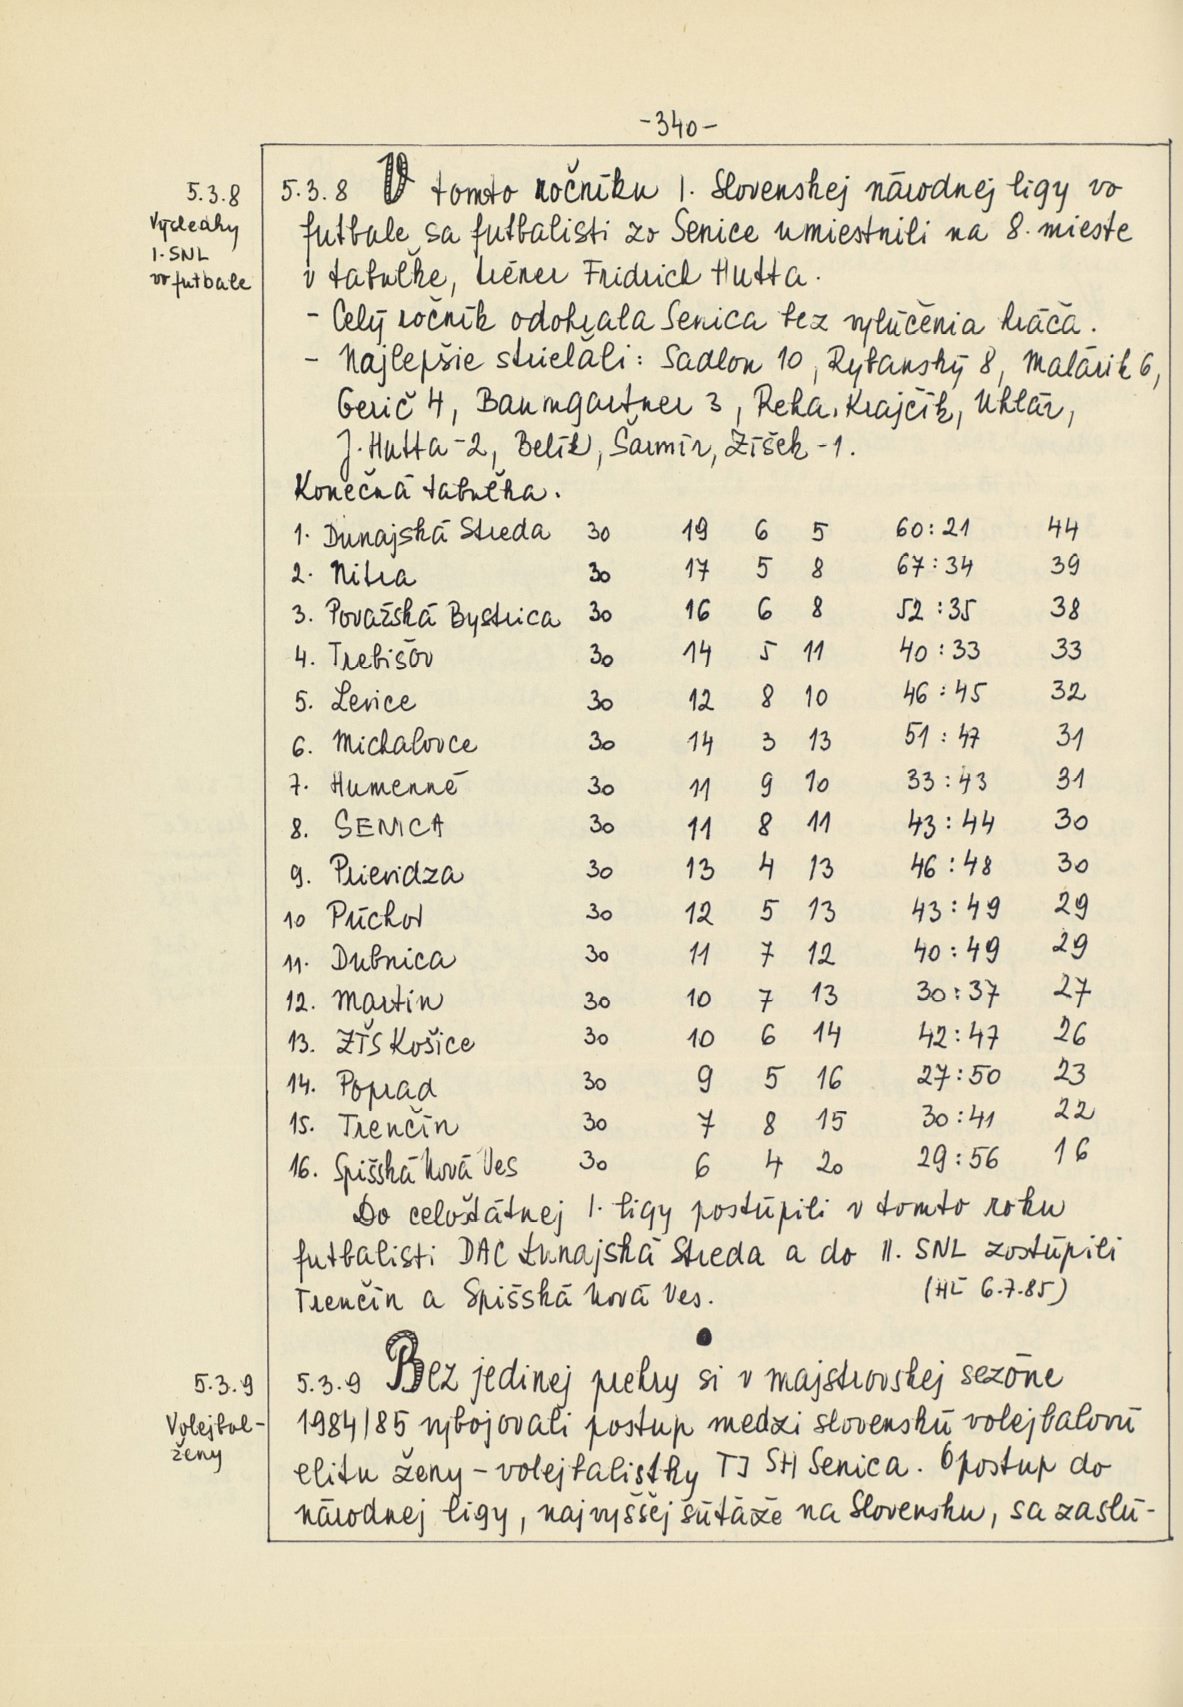 -340-
5.3.8
Výsledky
I. SNL
vo futbale
5.3.8 V tomto ročníku I. Slovenskej národnej ligy vo
futbale sa futbalisti zo Senice umiestnili na 8. mieste
v tabuľke, tréner Fridrich Hutta.
- Celý ročník odohrala Senica bez vylúčenia hráča.
- Najlepšie strieľali: Sadlon 10, Rybanský 8, Malárik 6,
Gerič 4, Baumgartner 3, Reha, Krajčík, Uhlár,
J. Hutta - 2, Belík, Šarmír, Žíšek - 1.
Konečná tabuľka.
1. Dunajská Streda 30 19 6 5 60:21 44
2. Nitra 30 17 5 8 67:34 39
3. Považská Bystrica 30 16 6 8 52:35 38
4. Trebišov 30 14 5 11 40:33 33
5. Levice 30 12 8 10 46:45 32
6. Michalovce 30 14 3 13 51:47 31
7. Humenné 30 11 9 10 33:43 31
8. SENICA 30 11 8 11 43:44 30
9. Prievidza 30 13 4 13 46:48 30
10 Púchov 30 12 5 13 43:49 29
11. Dubnica 30 11 7 12 40:49 29
12. Martin 30 10 7 13 30:37 27
13. ZŤS Košice 30 10 6 14 42:47 26
14. Poprad 30 9 5 16 27:50 23
15. Trenčín 30 7 8 15 30:41 22
16. Spišská Nová Ves 30 6 4 20 29:56 16
Do celoštátnej I. ligy postúpili v tomto roku
futbalisti DAC Dunajská Streda a do II. SNL zostúpili
Trenčín a Spišská Nová Ves. (HĽ 6.7.85)
5.3.9
Volejbal-
ženy
5.3.9 Bez jedinej prehry si v majstrovskej sezóne
1984/85 vybojovali postup medzi slovenskú volejbalovú
elitu ženy - volejbalistky TJ SH Senica. O postup do
národnej ligy, najvyššej súťaže na Slovensku, sa zaslú-